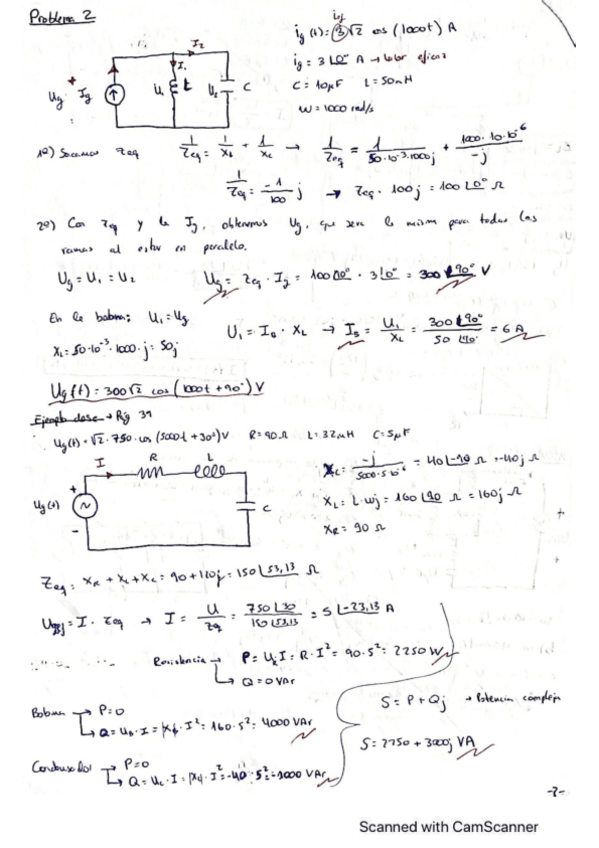 Problema 2
ief
ig(t) = 3√2 cos(1000t) A
ig = 3 ∠0° A → valor eficaz
C = 10μF L = 50mH
W = 1000 rad/s
I2
I1
Ug Ig U L U2 C
1º) Sacamos Zeq 1/Zeq = 1/XL + 1/XC → 1/Zeq = 1/(50·10^-3·1000j) + (1000·10·10^-6)/(-j)
1/Zeq = -1/100 j → Zeq = 100j = 100 ∠0° Ω
2º) Con Zeq y la Ig, obtenemos Ug, que sera la misma para todas las
ramas al estar en paralelo.
Ug = U1 = U2 Ug = Zeq · Ig = 100 ∠0° · 3∠0° = 300 ∠90° V
En la bobina; U1 = Ug
U1 = IB · XL → IB = U1/XL = 300∠90°/50∠90° = 6 A
XL = 50·10^-3·1000·j = 50j
Ug(t) = 300√2 cos(1000t + 90°) V
Ejemplo clase → Pág 39
Ug(t) = √2·750·cos(5000t + 30°) V R = 90Ω L = 32mH C = 5μF
I R L
+
Ug(t) ~ C
-
XC = -j/(5000·5·10^-6) = 40∠-90 Ω = -40j Ω
XL = L·wj = 160∠90 Ω = 160j Ω
XR = 90 Ω
Zeq = XR + XL + XC = 90 + 120j = 150∠53,13 Ω
= I · Zeq → I = U/Zq = 750∠30/150∠53,13 = 5∠-23,13 A
Resistencia → P = UR·I = R·I² = 90·5² = 2250 W
→ Q = 0 VAr
Bobina → P = 0
→ Q = UB·I = |XL|·I² = 160·5² = 4000 VAr
S = P + Qj → Potencia compleja
S = 2250 + 3000j VA
Condensador → P = 0
→ Q = UC·I = |XC|·I² = -40·5² = -1000 VAr
-2-
Scanned with CamScanner